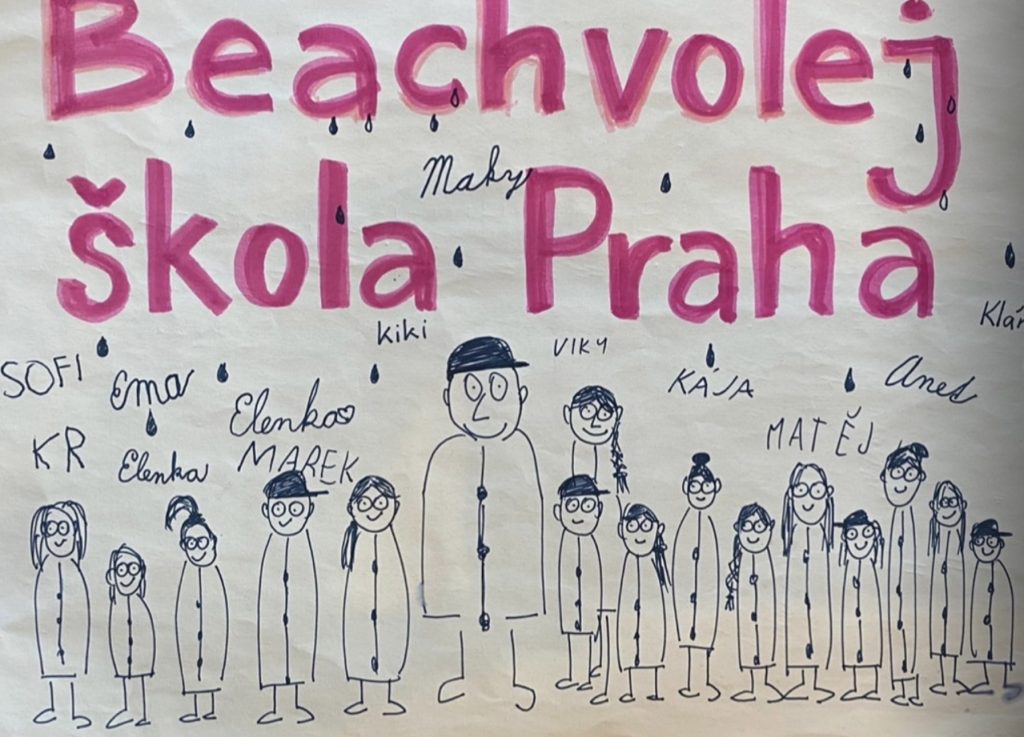 Beachvolej
Maky
škola Praha
Kiki
VIKY
SOFI
Ema
Elenka
KÁJA
Aned
KR
Elenka
MAREK
MATĚJ